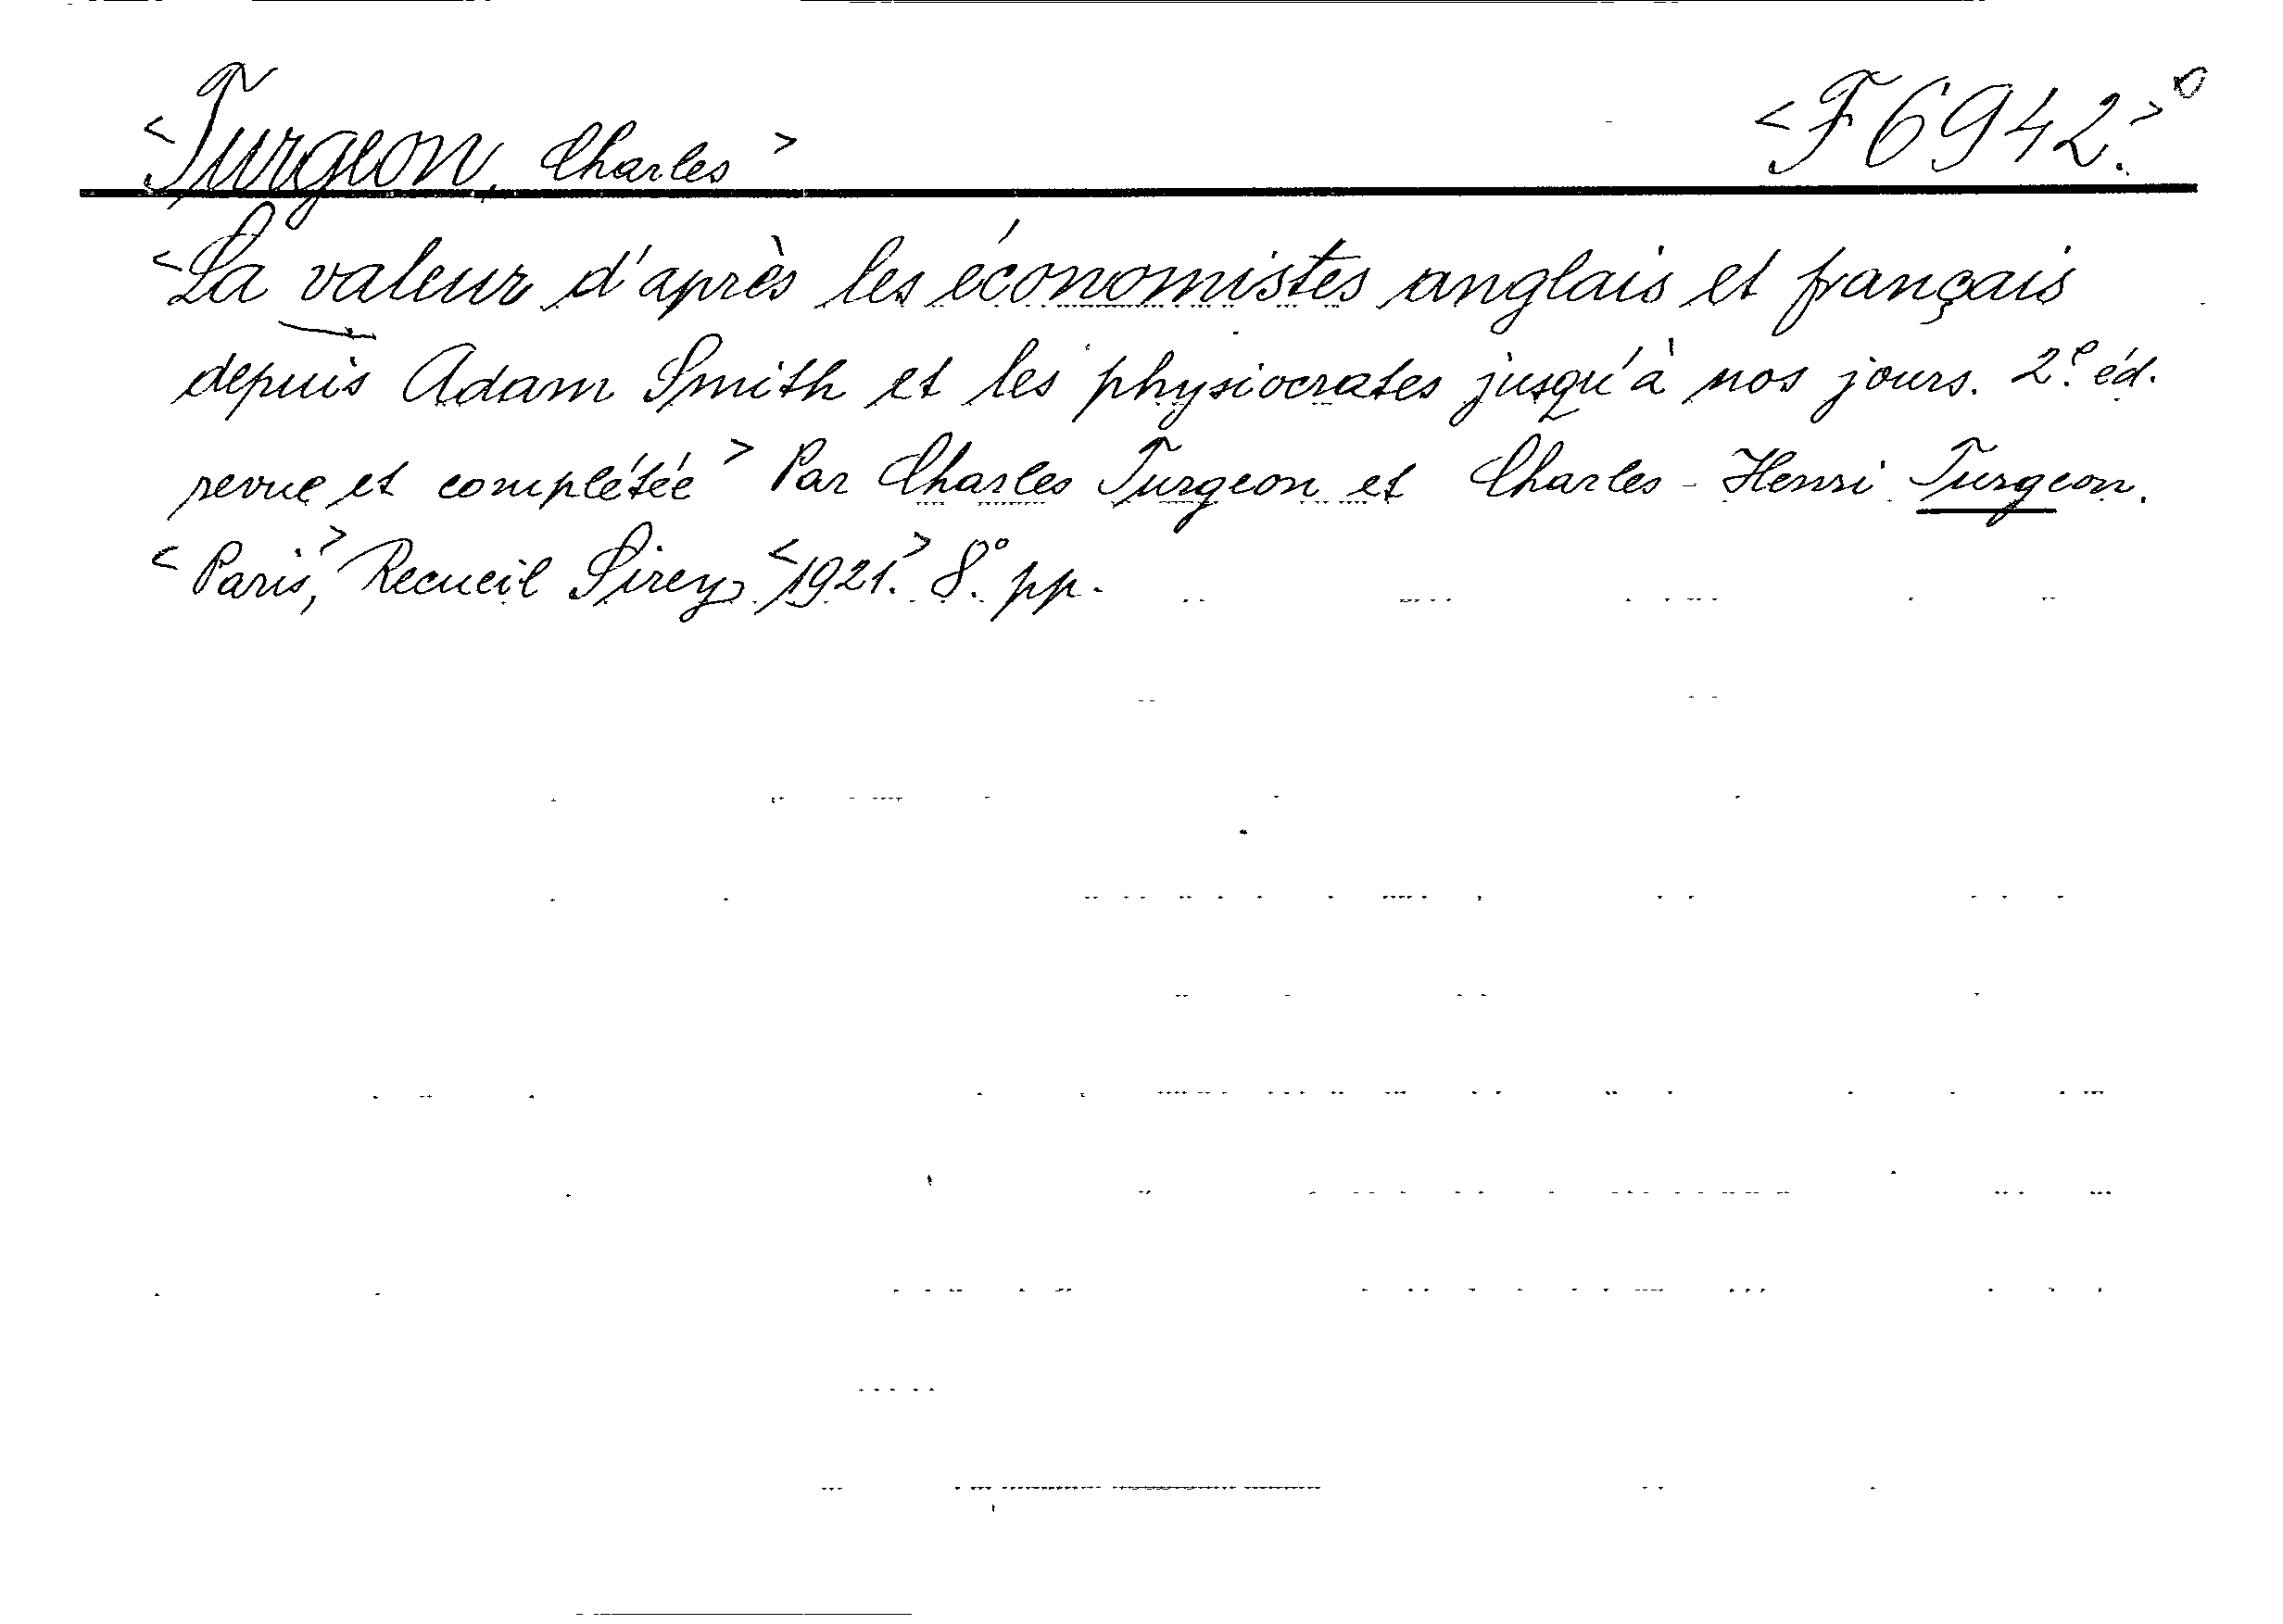 <Turgeon, Charles> <F 6942.>
<La valeur d'après les économistes anglais et français
depuis Adam Smith et les physiocrates jusqu'à nos jours. 2e éd.
revue et complétée> Par Charles Turgeon et Charles-Henri Turgeon.
<Paris,> Recueil Sirey, <1921.> 8° pp.